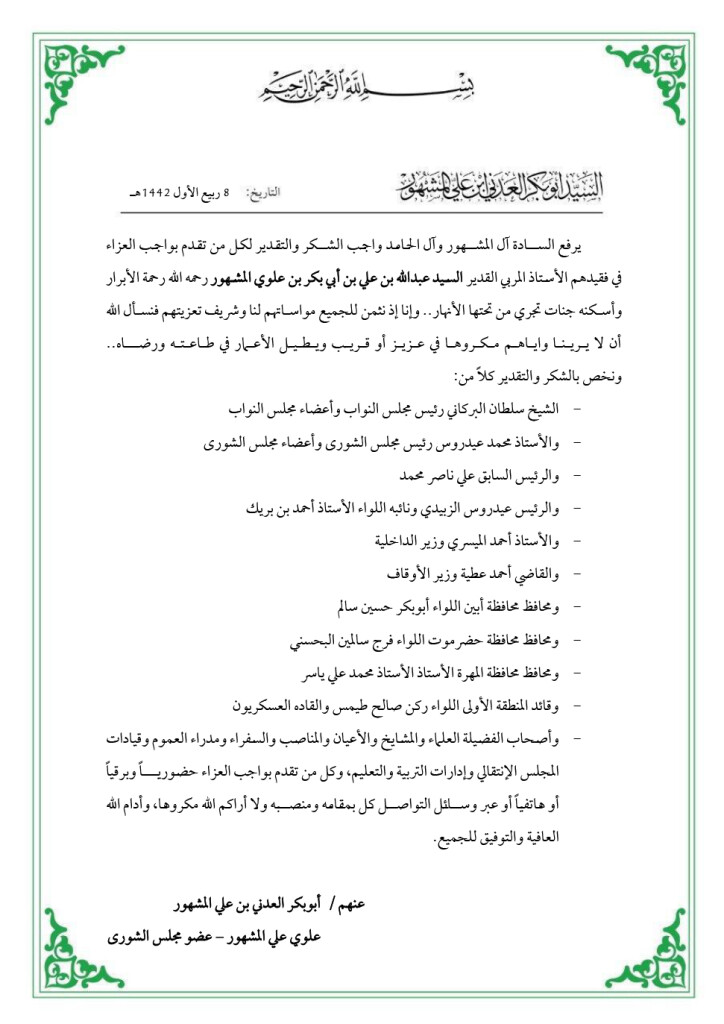 بسم الله الرحمن الرحيم
السيد أبوبكر العدني ابن علي المشهور
التاريخ: 8 ربيع الأول 1442هـ
يرفع السادة آل المشهور وآل الحامد واجب الشكر والتقدير لكل من تقدم بواجب العزاء
في فقيدهم الأستاذ المربي القدير السيد عبدالله بن علي بن أبي بكر بن علوي المشهور رحمه الله رحمة الأبرار
وأسكنه جنات تجري من تحتها الأنهار.. وإنا إذ نثمن للجميع مواساتهم لنا وشريف تعزيتهم فنسأل الله
أن لا يرينا واياهم مكروها في عزيز أو قريب ويطيل الأعمار في طاعته ورضاه..
ونخص بالشكر والتقدير كلاً من:
- الشيخ سلطان البركاني رئيس مجلس النواب وأعضاء مجلس النواب
- والأستاذ محمد عيدروس رئيس مجلس الشورى وأعضاء مجلس الشورى
- والرئيس السابق علي ناصر محمد
- والرئيس عيدروس الزبيدي ونائبه اللواء الأستاذ أحمد بن بريك
- والأستاذ أحمد الميسري وزير الداخلية
- والقاضي أحمد عطية وزير الأوقاف
- ومحافظ محافظة أبين اللواء أبوبكر حسين سالم
- ومحافظ محافظة حضرموت اللواء فرج سالمين البحسني
- ومحافظ محافظة المهرة الأستاذ الأستاذ محمد علي ياسر
- وقائد المنطقة الأولى اللواء ركن صالح طيمس والقاده العسكريون
- وأصحاب الفضيلة العلماء والمشايخ والأعيان والمناصب والسفراء ومدراء العموم وقيادات
المجلس الإنتقالي وإدارات التربية والتعليم، وكل من تقدم بواجب العزاء حضورياً وبرقياً
أو هاتفياً أو عبر وسائل التواصل كل بمقامه ومنصبه ولا أراكم الله مكروها، وأدام الله
العافية والتوفيق للجميع.
عنهم / أبوبكر العدني بن علي المشهور
علوي علي المشهور – عضو مجلس الشورى